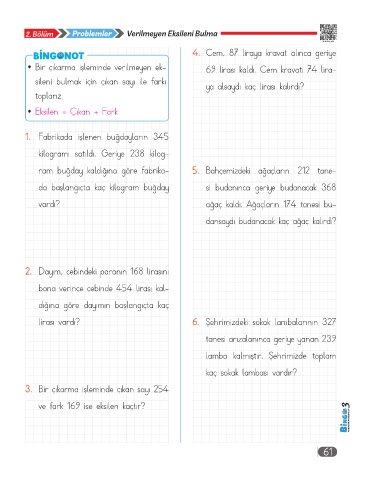 2. Bölüm Problemler Verilmeyen Eksileni Bulma
BİNGO NOT
• Bir çıkarma işleminde verilmeyen ek-
sileni bulmak için çıkan sayı ile farkı
toplarız.
• Eksilen = Çıkan + Fark
1. Fabrikada işlenen buğdayların 345
kilogramı satıldı. Geriye 238 kilog-
ram buğday kaldığına göre fabrika-
da başlangıçta kaç kilogram buğday
vardı?
2. Dayım, cebindeki paranın 168 lirasını
bana verince cebinde 454 lirası kal-
dığına göre dayımın başlangıçta kaç
lirası vardı?
3. Bir çıkarma işleminde çıkan sayı 254
ve fark 169 ise eksilen kaçtır?
4. Cem, 87 liraya kravat alınca geriye
69 lirası kaldı. Cem kravatı 74 lira-
ya alsaydı kaç lirası kalırdı?
5. Bahçemizdeki ağaçların 212 tane-
si budanınca geriye budanacak 368
ağaç kaldı. Ağaçların 174 tanesi bu-
dansaydı budanacak kaç ağaç kalırdı?
6. Şehrimizdeki sokak lambalarının 327
tanesi arızalanınca geriye yanan 239
lamba kalmıştır. Şehrimizde toplam
kaç sokak lambası vardır?
BİNGO 3
61